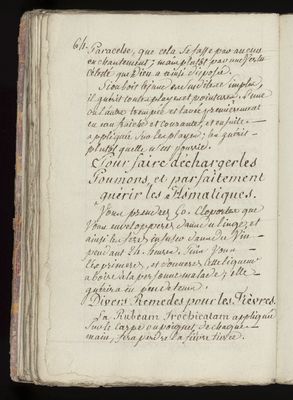 64.
Paracelse, que cela se fasse par aucun
enchantement; mais plustost par une vertu
céleste que Dieu a ainsi disposée.
il guérit toutes playes et pointures, l'une
ou l'autre trempée et lavée premièrement
en eau fraiche et courante, et ensuite
appliquée sur les playes; les guérit
plustost quelle n'est pourrie.
Pour faire décharger les
Poumons, et parfaitement
guérir les Asmatiques.
Vous prendrez 50. Cloportes que
Vous envelopperez dans un linge, et
ainsi les ferez infuser dans de Vin
pendant 24. heures. Puis Vous
exprimerez, et donnerez cette liqueur
a boire à la personne malade; elle
guérira en peu de tems.
Divers Remedes pour les Fièvres.
La Rubeam Trochicatam appliquée
sur le Carpe ou poignet de chaque
main, fera perdre la fièvre tierce.